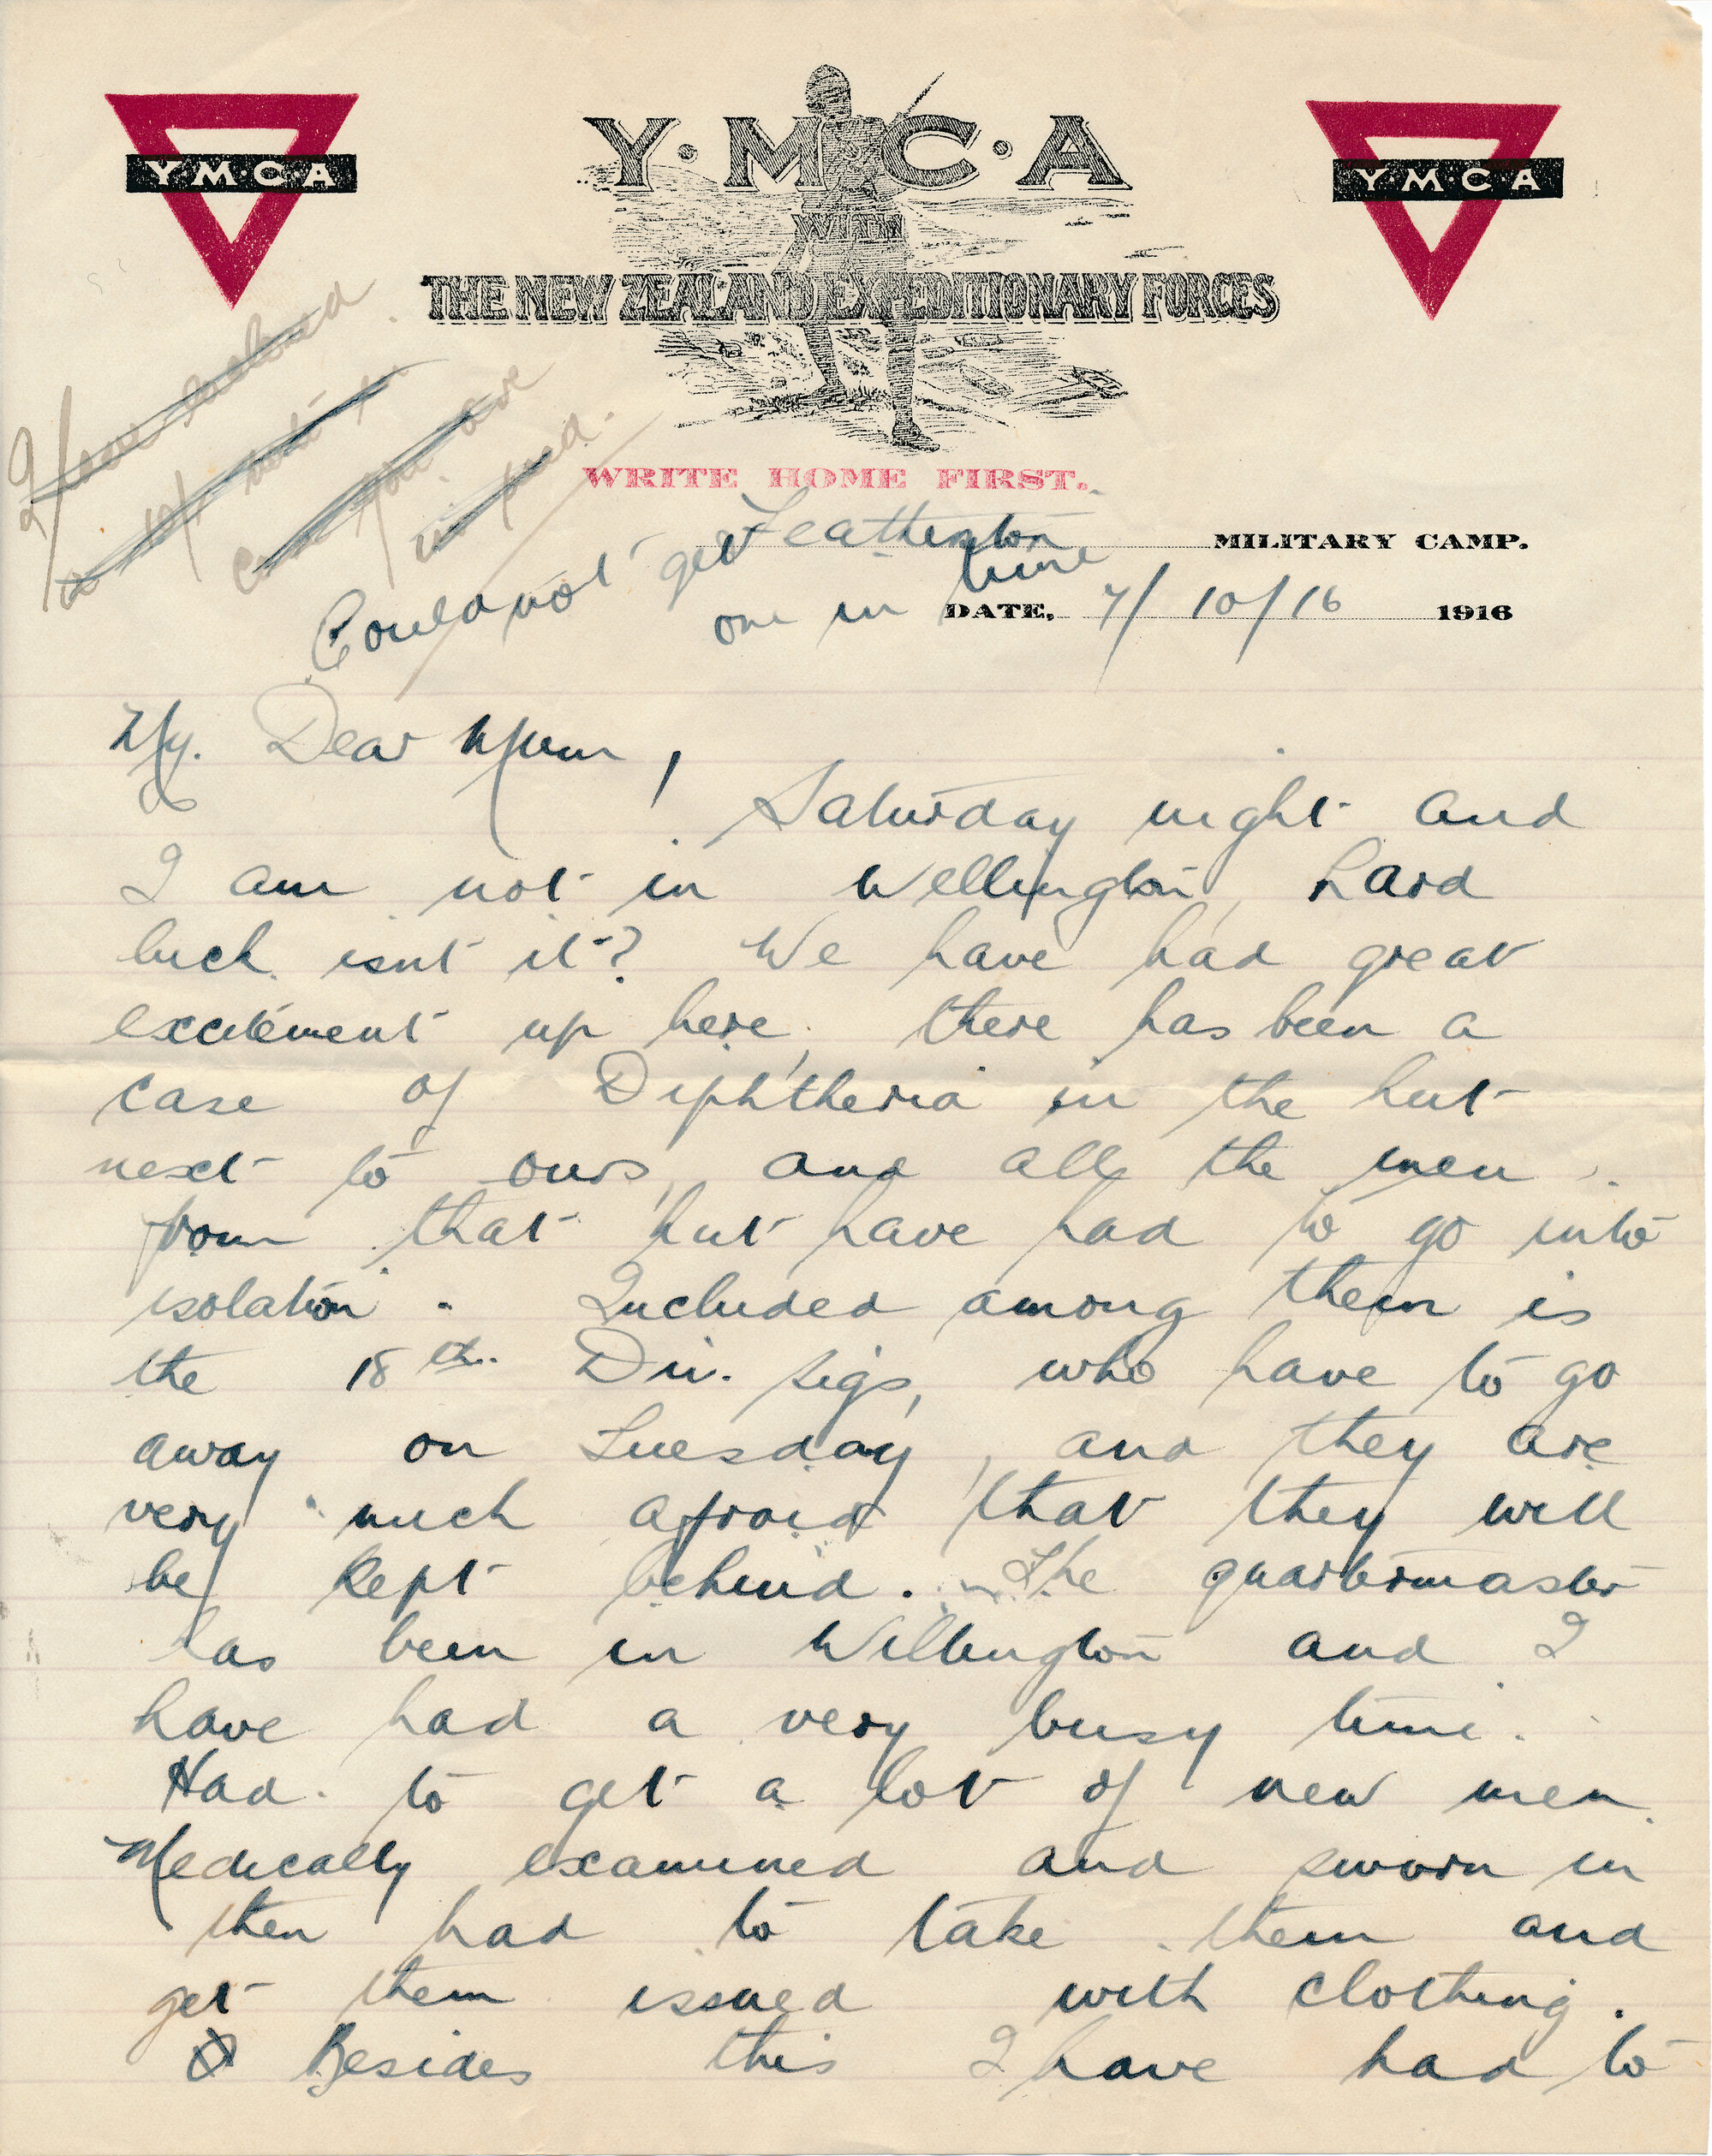 Y·M·C·A
Y·M·C·A
Y·M·C·A
WITH
THE NEW ZEALAND EXPEDITIONARY FORCES
WRITE HOME FIRST.
I have
a
can you are
Featherston MILITARY CAMP.
DATE, 7/10/16 1916
Could not get
one in time
My. Dear Mum,
Saturday night and
I am not in Wellington, hard
luck isnt it? We have had great
excitement up here, there has been a
case of Diphtheria in the hut
next to ours, and all the men
from that hut have had to go into
isolation. Included among them is
the 18th Div. sigs, who have to go
away on Tuesday, and they are
very much afraid that they will
be kept behind. The quartermaster
has been in Wellington and I
have had a very busy time.
Had to get a lot of new men
Medically examined and sworn in
then had to take them and
get them issued with clothing.
Besides this I have had to